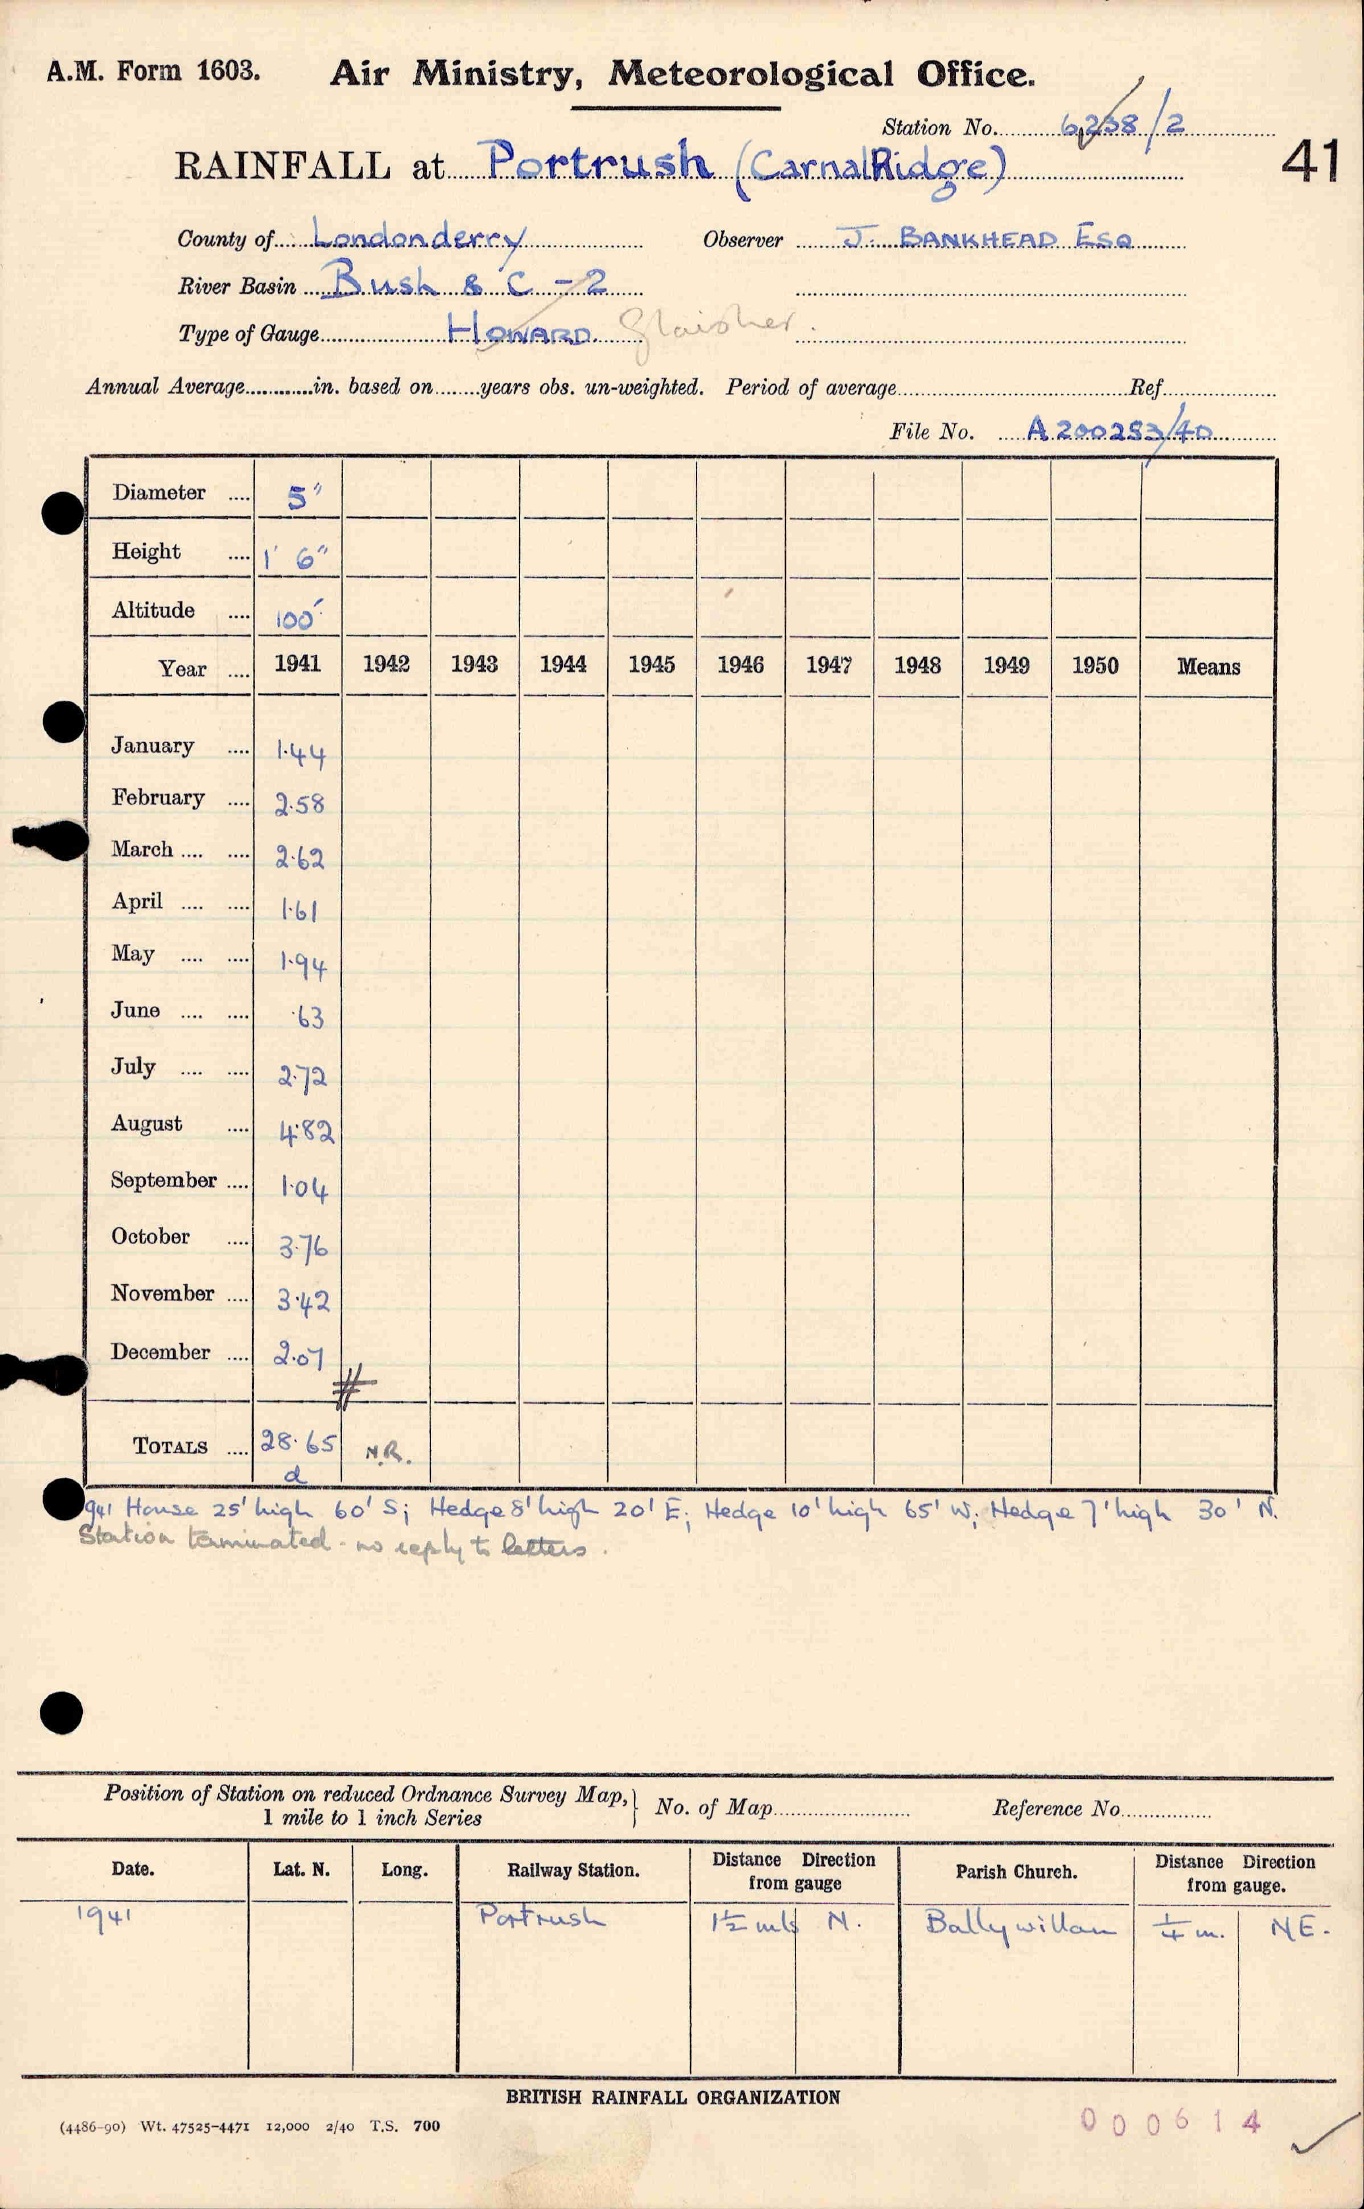 A.M. Form 1603. Air Ministry, Meteorological Office.
Station No. 6238/2
RAINFALL at Portrush (Carnal Ridge) 41
County of Londonderry Observer J. BANKHEAD ESQ
River Basin Bush & C - 2
Type of Gauge HOWARD. Glaisher.
Annual Average............in. based on........years obs. un-weighted. Period of average............Ref............
File No. A 200253/40
Diameter .... 5"
Height .... 1' 6"
Altitude .... 100'
Year .... 1941 1942 1943 1944 1945 1946 1947 1948 1949 1950 Means
January .... 1.44
February .... 2.58
March .... .... 2.62
April .... .... 1.61
May .... .... 1.94
June .... .... .63
July .... .... 2.72
August .... 4.82
September .... 1.04
October .... 3.76
November .... 3.42
December .... 2.07
#
TOTALS .... 28.65 N.R.
d
1941 House 25' high 60' S; Hedge 8' high 20' E; Hedge 10' high 65' W; Hedge 7' high 30' N.
Station terminated - no reply to letters.
Position of Station on reduced Ordnance Survey Map, } No. of Map............ Reference No............
1 mile to 1 inch Series
Date. Lat. N. Long. Railway Station. Distance Direction from gauge Parish Church. Distance Direction from gauge.
1941 Portrush 1½ mls N. Ballywillan ¼ m. NE.
BRITISH RAINFALL ORGANIZATION
(4486-90) Wt. 47525-4471 12,000 2/40 T.S. 700
000614